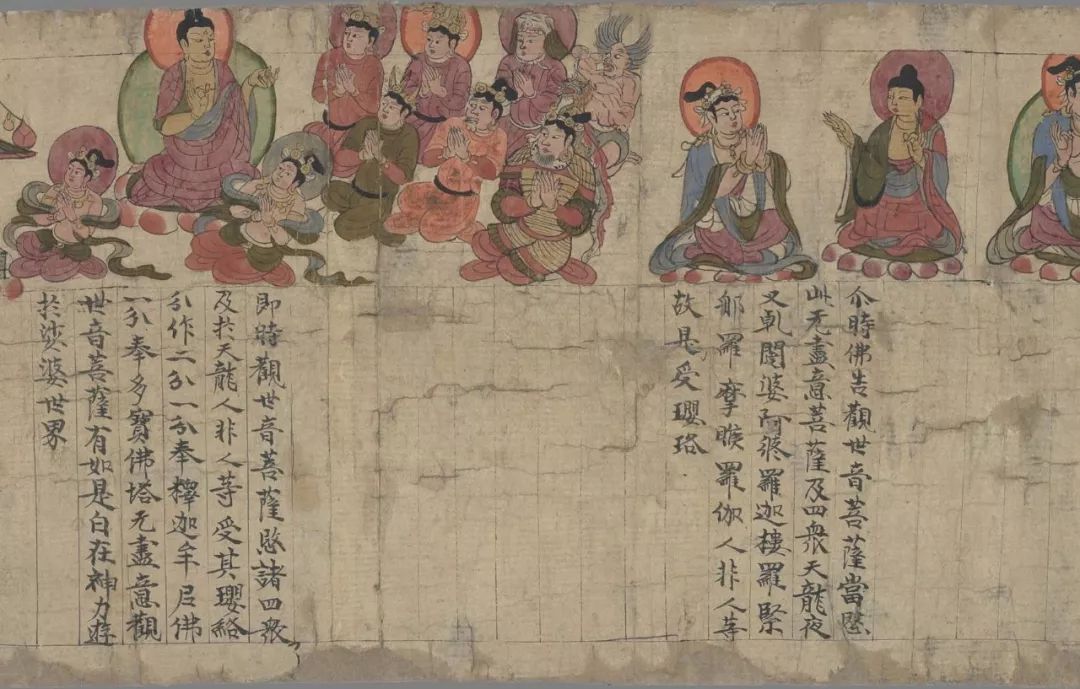 尒時佛告觀世音菩薩當愍
此无盡意菩薩及四衆天龍夜
叉乹闥婆阿脩羅迦樓羅緊
那羅摩睺羅伽人非人等
故是受瓔珞
即時觀世音菩薩愍諸四衆
及於天龍人非人等受其瓔絡
分作二分一分奉釋迦牟尼佛
一分奉多寶佛塔无盡意觀
世音菩薩有如是自在神力遊
於娑婆世界